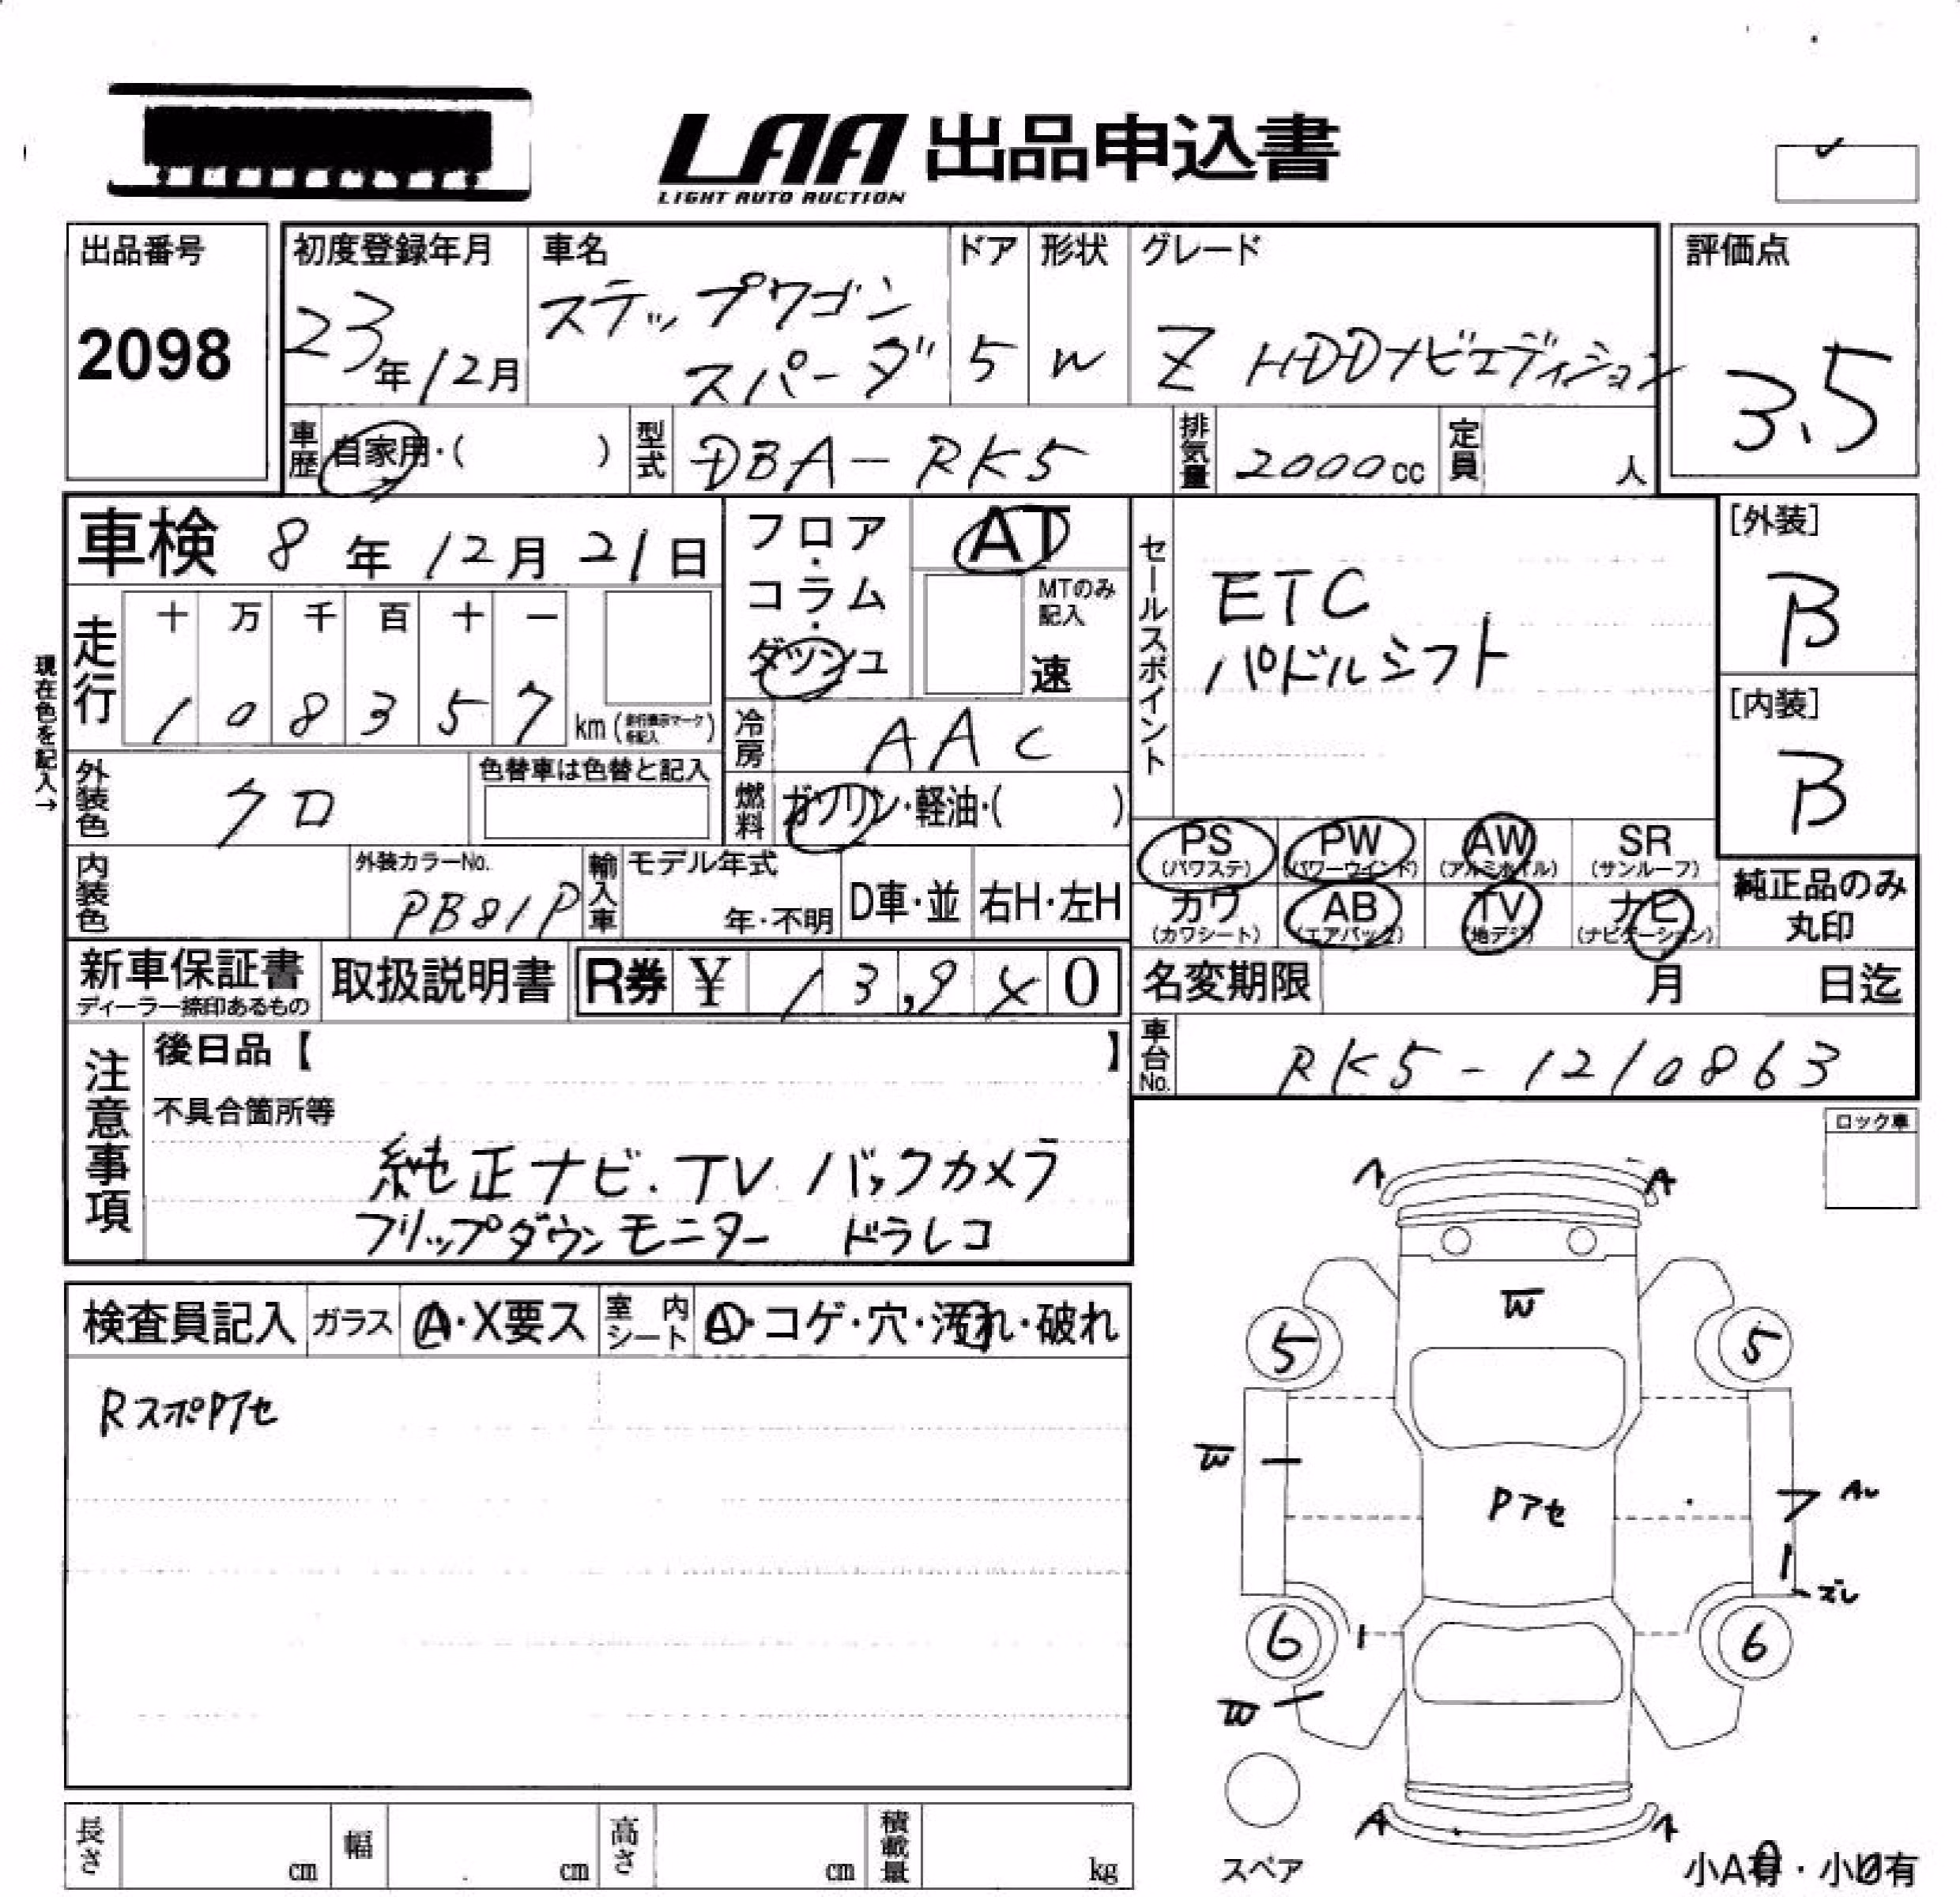 LAA 出品申込書
LIGHT AUTO AUCTION
出品番号
2098
初度登録年月
23年12月
車名
ステップワゴン
スパーダ
ドア
5
形状
W
グレード
Z HDDナビエディション
評価点
3.5
車歴
自家用・( )
型式
DBA-RK5
排気量
2000cc
定員
人
車検 8年12月21日
フロア・コラム・ダッシュ
AT
MTのみ記入
速
セールスポイント
ETC
パドルシフト
[外装]
B
[内装]
B
現在色を記入→
走行
十 万 千 百 十 一
1 0 8 3 5 7 km (走行表示マークを記入)
冷房
AAC
外装色
クロ
色替車は色替と記入
燃料
ガソリン・軽油・( )
内装色
外装カラーNo.
PB81P
輸入車
モデル年式
年・不明
D車・並
右H・左H
PS
(パワステ)
PW
(パワーウインド)
AW
(アルミホイル)
SR
(サンルーフ)
カワ
(カワシート)
AB
(エアバック)
TV
(地デジ)
ナビ
(ナビゲーション)
純正品のみ
丸印
新車保証書
ディーラー捺印あるもの
取扱説明書
R券 ¥ 13,940
名変期限 月 日迄
車台No.
RK5-1210863
注意事項
後日品【 】
不具合箇所等
純正ナビ.TV バックカメラ
フリップダウンモニター ドラレコ
ロック車
検査員記入
ガラス
A・X要ス
室内シート
A・コゲ・穴・汚れ・破れ
RスポPアセ
A A
W
5 5
W
Pアセ
ズレ
6 6
W
A A
スペア
小A有・小U有
長さ cm
幅 cm
高さ cm
積載量 kg